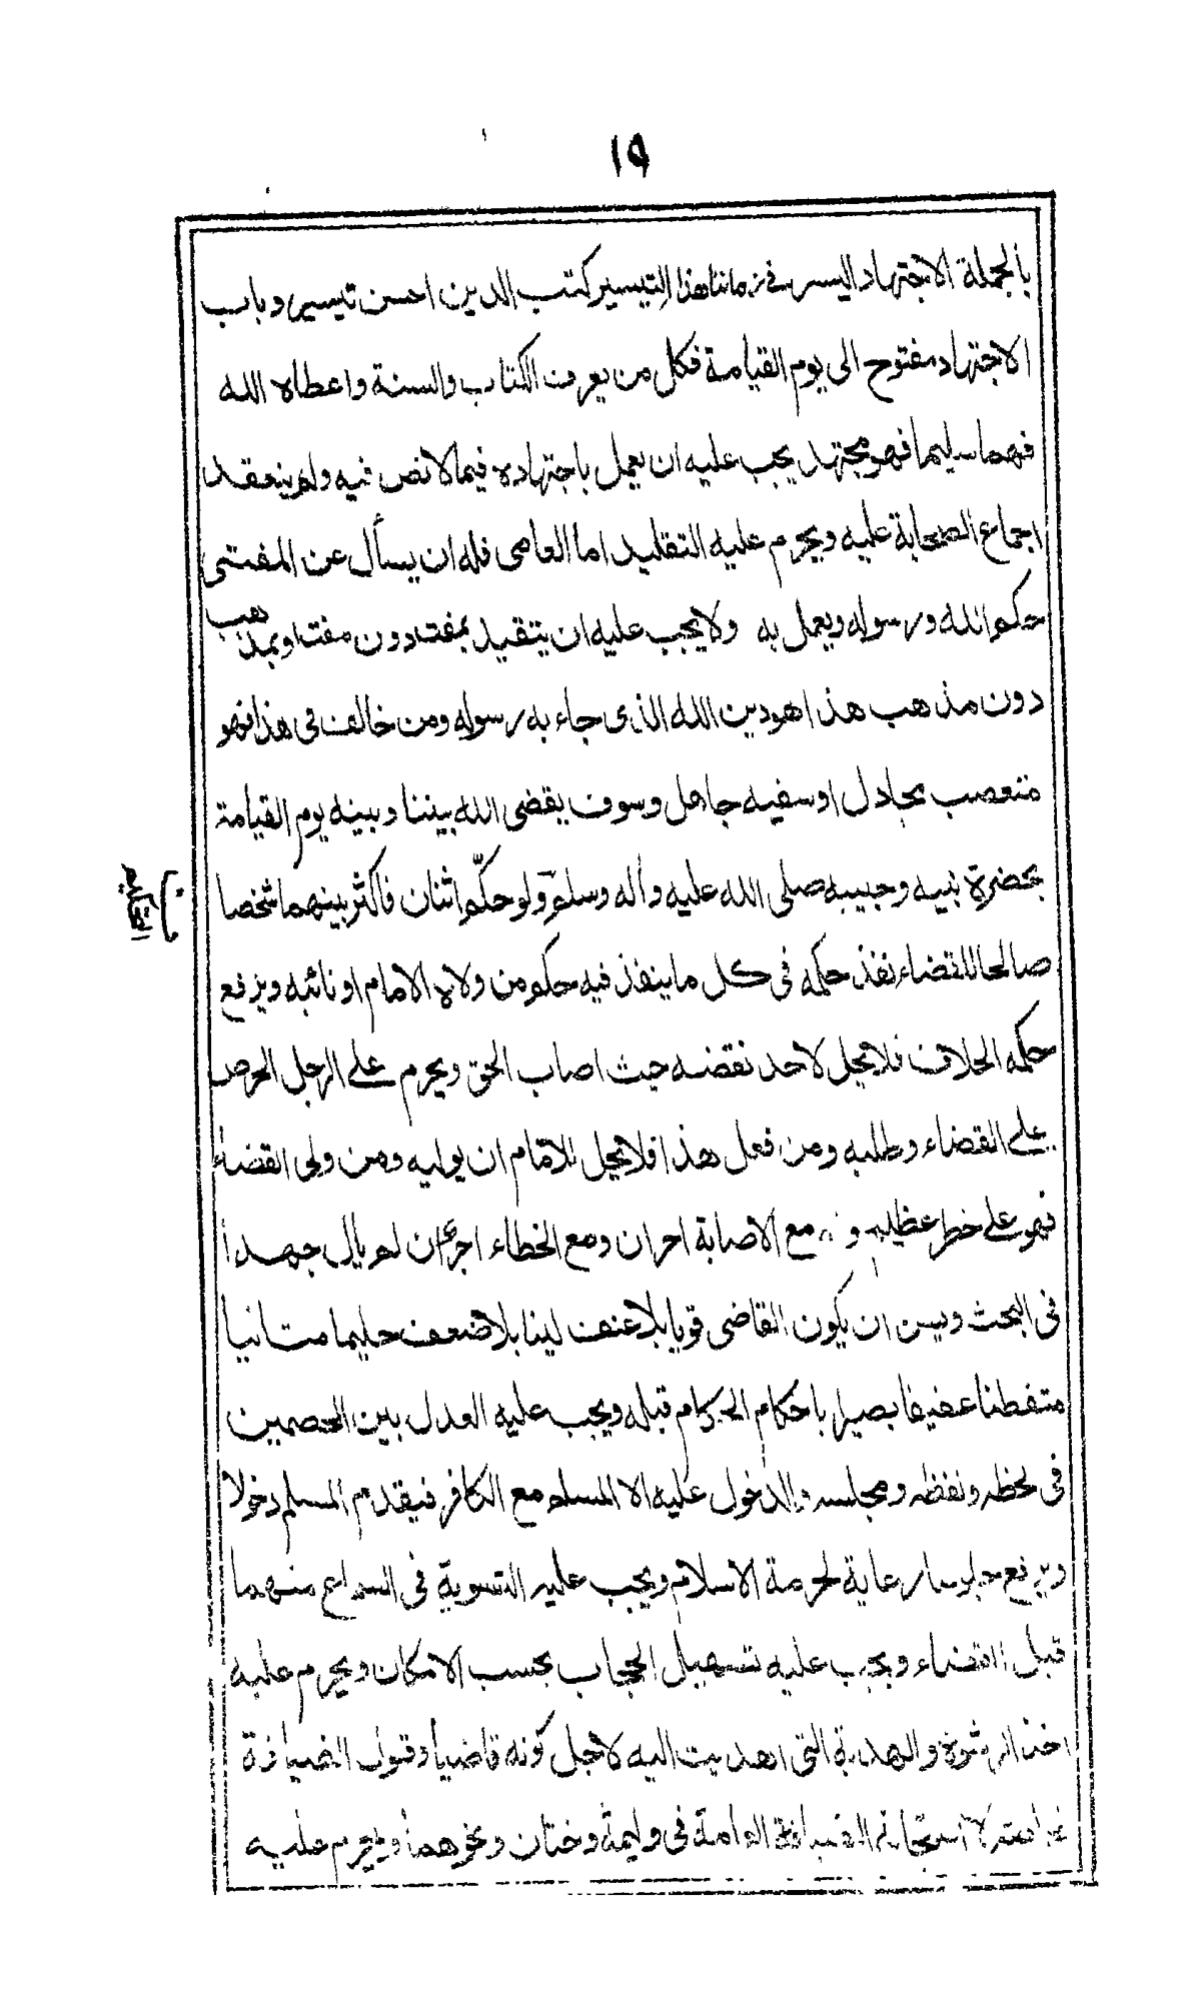 ١٩
بالجملة الاجتهاد اليسر في زماننا هذا التيسير كتب الدين احسن تيسير وباب
الاجتهاد مفتوح الى يوم القيامة فكل من يعرف الكتاب والسنة واعطاه الله
فهما سليما فهو مجتهد يجب عليه ان يعمل باجتهاده فيما لا نص فيه ولم ينعقد
اجماع الصحابة عليه ويحرم عليه التقليد اما العامى فله ان يسأل عن المفتى
حكم الله ورسوله ويعمل به ولا يجب عليه ان يتقيد بمفت دون مفت او بمذهب
دون مذهب هذا هو دين الله الذى جاء به رسوله ومن خالف فى هذا فهو
متعصب مجادل او سفيه جاهل وسوف يقضى الله بيننا وبينه يوم القيامة
بحضرة نبيه وحبيبه صلى الله عليه وأله وسلم ولو حكّم اثنان فاكثر بينهما شخصا
صالحا للقضاء نفذ حكمه فى كل ما ينفذ فيه حكم من ولاه الامام او نائبه ويرفع
حكمه الخلاف فلا يحل لاحد نقضه حيث اصاب الحق ويحرم على الرجل الحرص
على القضاء وطلبه ومن فعل هذا فلا يحل للامام ان يوليه ومن ولى القضاء
فهو على خطر عظيم و مع الاصابة اجران ومع الخطاء اجر ان لم يال جهدا
فى البحث ويسن ان يكون القاضى قويا بلا عنف لينا بلا ضعف حليما متانيا
متفطنا عفيفا بصيرا باحكام الحكام قبله ويجب عليه العدل بين الخصمين
فى لحظه ولفظه ومجلسه والدخول عليه الا المسلم مع الكافر فيقدم المسلم دخولا
ويرفع جلوسا رعاية لحرمة الاسلام ويجب عليه التسوية فى السماع منهما
قبل القضاء ويجب عليه تسهيل الحجاب بحسب الامكان ويحرم عليه
اخذ الرشوة والهدية التى اهديت اليه لاجل كونه قاضيا وقبول الضيافة
الضيافة العامة فى وليمة وختان ونحوهما ويحرم عليه